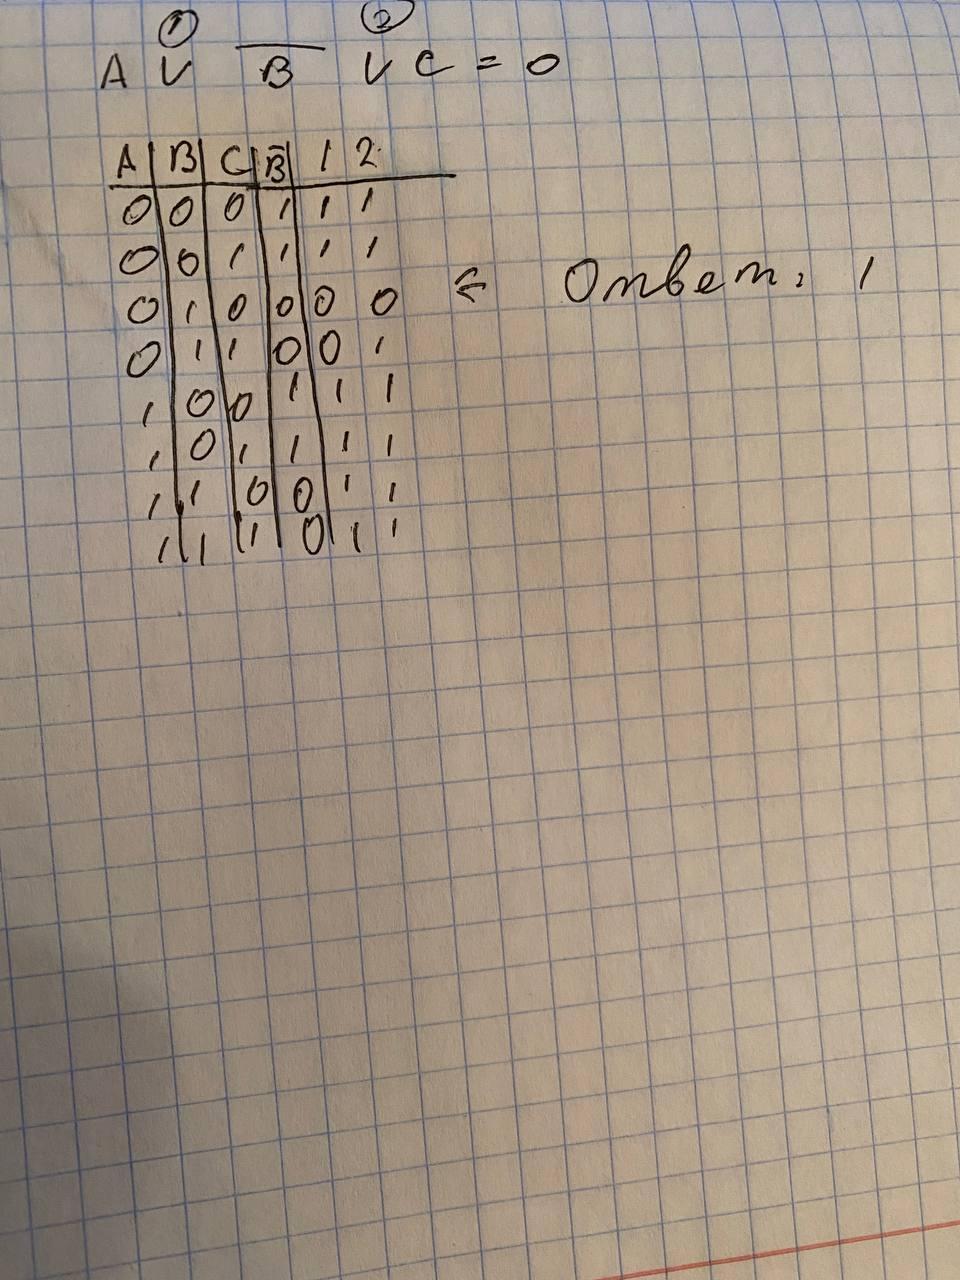 ① ②
A V B̅ V C = 0
A | B | C | B̅ | 1 2
0 0 0 1 1 1
0 0 1 1 1 1
0 1 0 0 0 0 ⇐ Ответ: 1
0 1 1 0 0 1
1 0 0 1 1 1
1 0 1 1 1 1
1 1 0 0 1 1
1 1 1 0 1 1